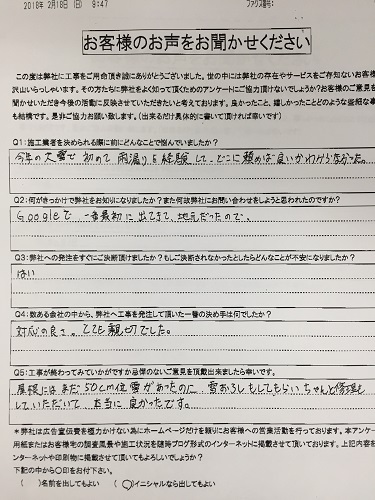 2018年 2月18日(日) 9:47
ファクス番号:
お客様のお声をお聞かせください
この度は弊社に工事をご用命頂き誠にありがとうございました。世の中には弊社の存在やサービスをご存知ないお客様
沢山いらっしゃいます。その方たちに弊社をよく知って頂くためのアンケートにご協力頂けないでしょうか?お客様のご意見を
聞かせいただき今後の活動に反映させていただきたいと考えております。良かったこと、嬉しかったことどのような些細な事
も結構です。是非ご協力お願い致します。(出来るだけ具体的に書いて頂ければ幸いです)
Q1:施工業者を決められる際に前にどんなことで悩んでいましたか?
今年の大雪で初めて雨漏りを経験して、どこに頼めば良いかわからなかった。
Q2:何がきっかけで弊社をお知りになりましたか?また何故弊社にお問い合わせをしようと思われたのですか?
Googleで一番最初に出てきて、地元だったので。
Q3:弊社への発注をすぐにご決断頂けましたか?もしご決断されなかったとしたらどんなことが不安になりましたか?
はい
Q4:数ある会社の中から、弊社へ工事を発注して頂いた一番の決め手は何でしたか?
対応の良さ。とても親切でした。
Q5:工事が終わってみていかがですか忌憚のないご意見を頂戴出来ましたら幸いです。
屋根にはまだ50cm位雪があったのに、雪おろしもしてもらいちゃんと修理も
していただいて、本当に良かったです。
*弊社は広告宣伝費を極力かけない為にホームページだけを頼りにお客様への営業活動を行っております。本アンケー
用紙またはお客様宅の調査風景や施工状況を随時ブログ形式のインターネットに掲載させて頂いております。上記内容を
ンターネットや印刷物に掲載させて頂いてもよろしいでしょうか?
下記の中から〇印をお付下さい。
( )名前を出してもよい (〇)イニシャルなら出してもよい